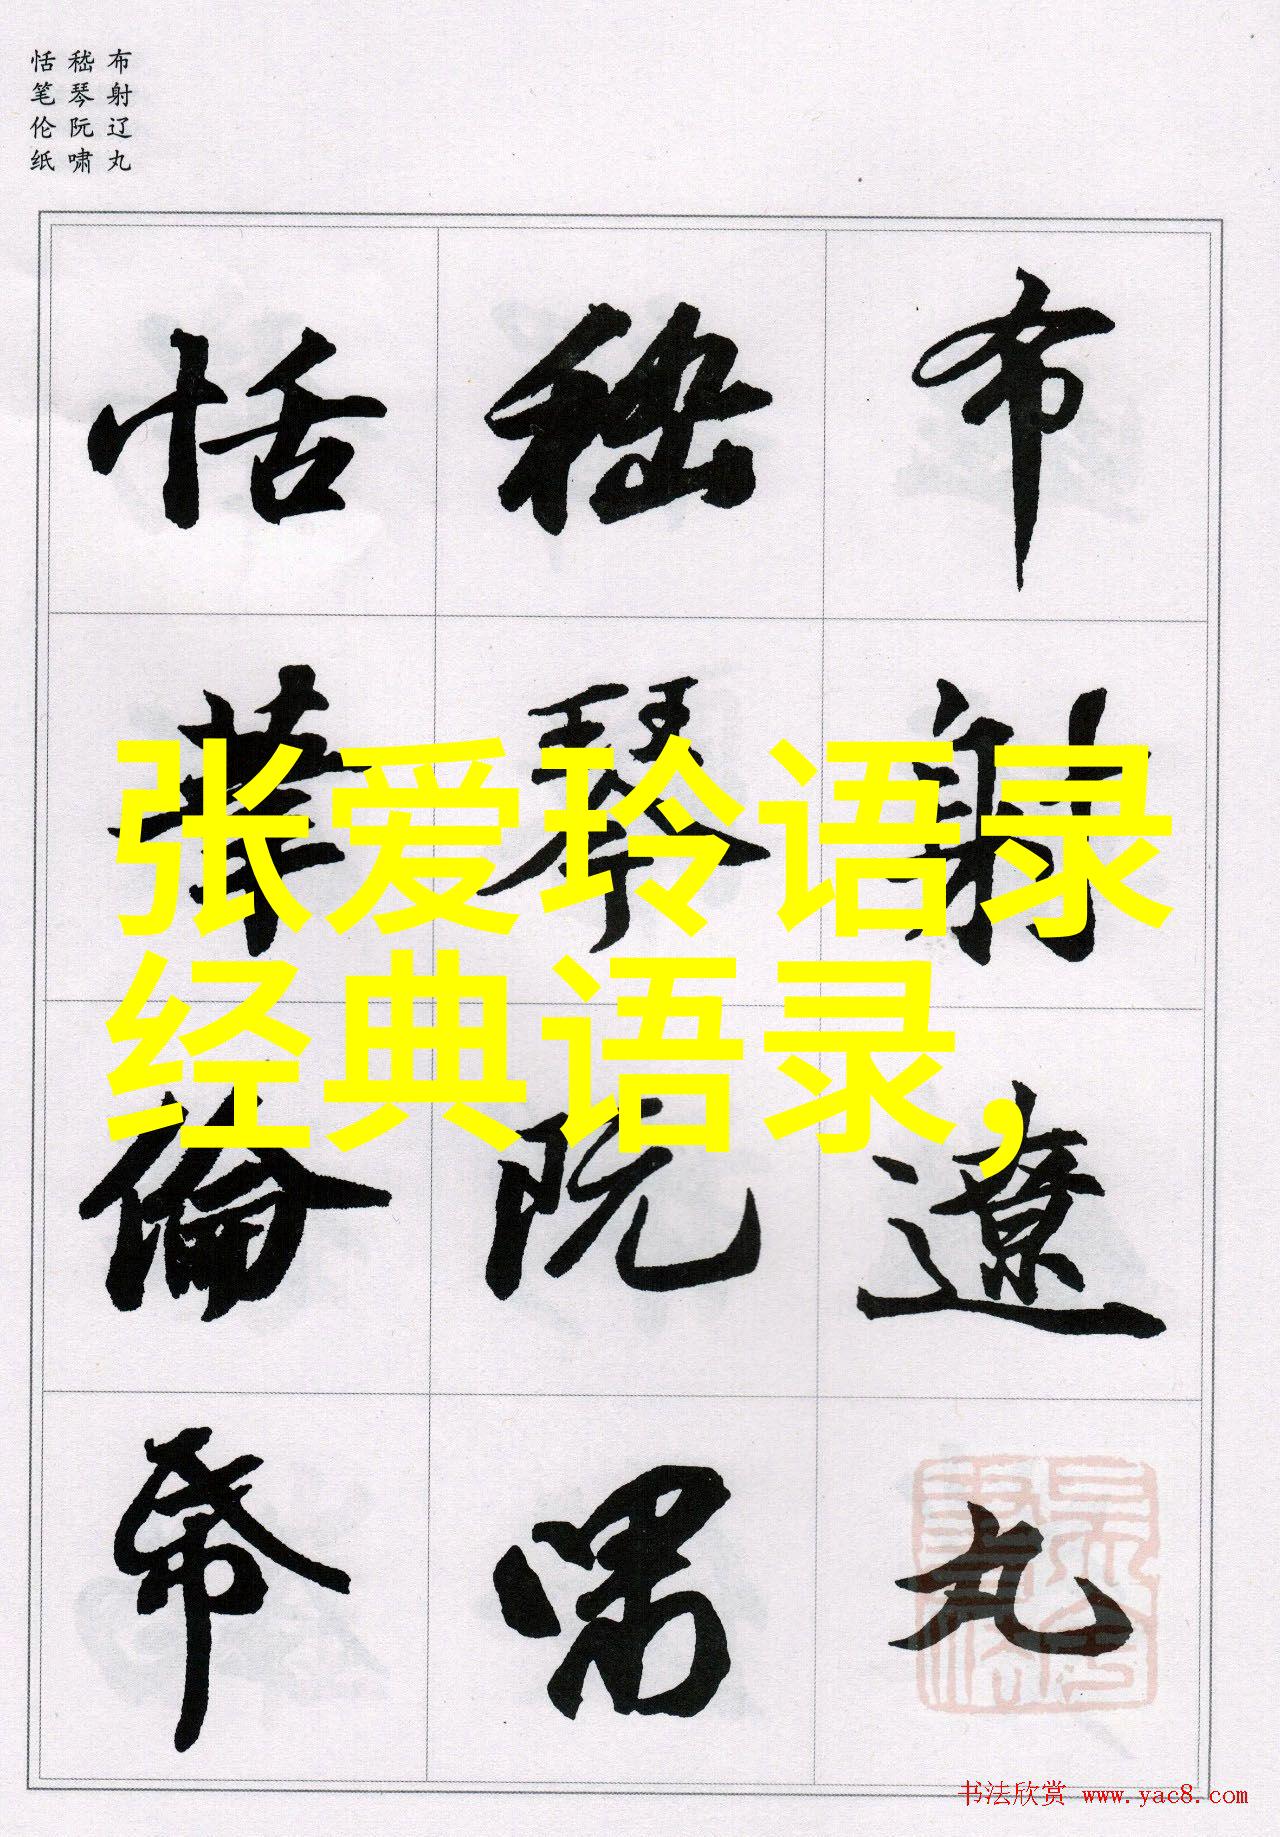 布射辽丸
嵇琴阮啸
恬笔伦纸
布射遼丸
嵇琴阮嘯
恬筆倫帋
张爱玲语录
经典语录，
书法欣赏 www.yac8.com